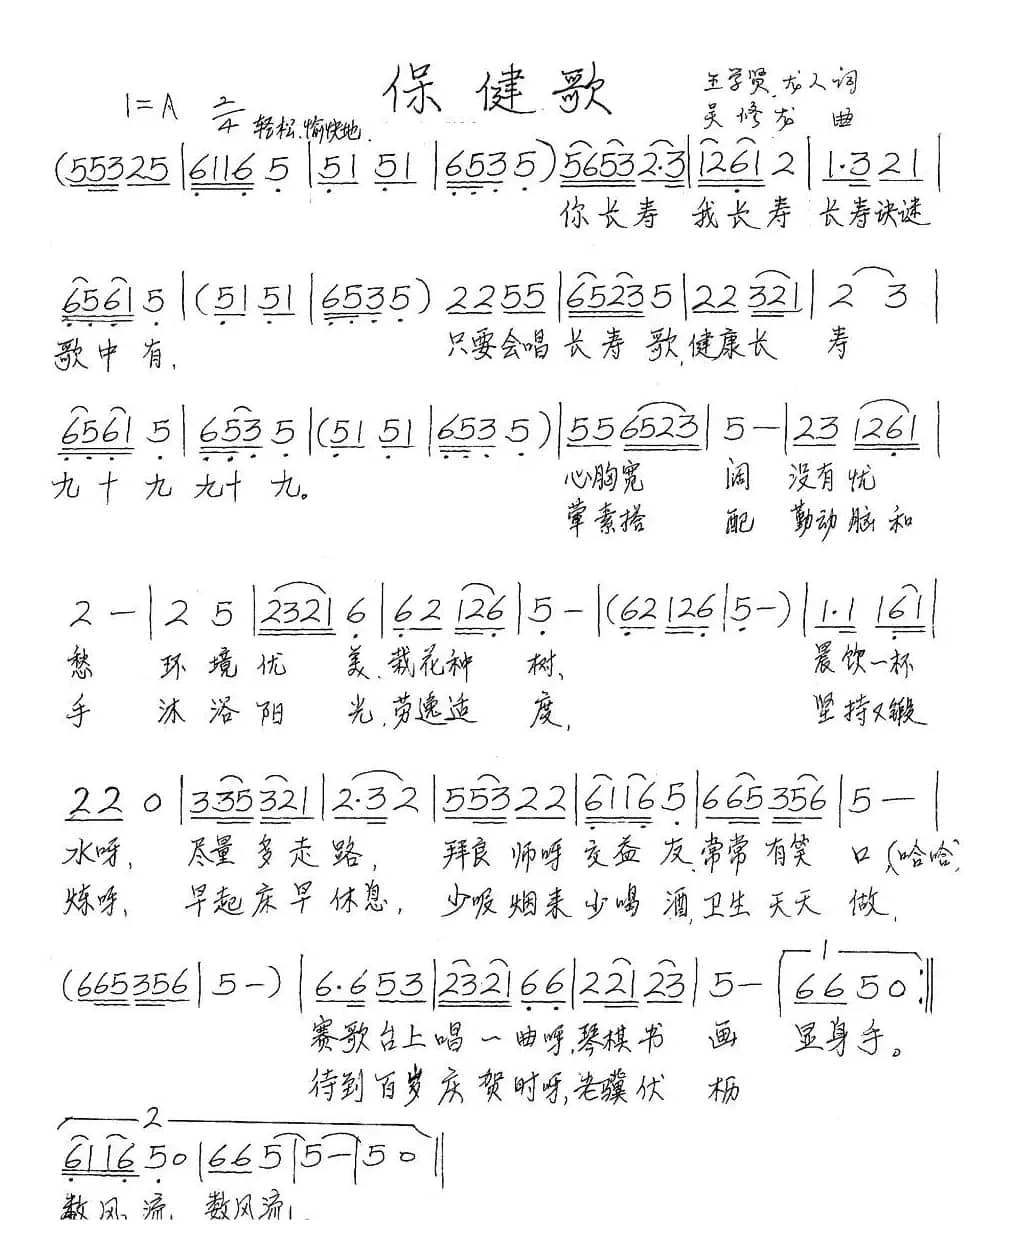 保健歌
王学贤、龙人词
1=A 2/4 轻松、愉快地.
吴修龙 曲
(55325|61165|5151|6535)56532·3|12612|1·321|
你长寿 我长寿 长寿诀谜
65615|(5151|6535)2255|65235|22321|2 3|
歌中有, 只要会唱长寿歌,健康长 寿
65615|6535|(5151|6535)|556523|5-|231261|
九十九 九十九。 心胸宽 阔 没有忧
荤素搭 配 勤动脑和
2-|2 5|23216|62126|5-|(62126|5-)|1·1161|
愁 环境优 美、栽花种 树、 晨饮一杯
手 沐浴阳 光,劳逸适 度, 坚持又锻
220|335321|2·32|55322|61165|665356|5-|
水呀, 尽量多走路, 拜良师呀交益友,常常有笑 口,(哈哈)
炼呀、 早起床早休息, 少吸烟来少喝酒,卫生天天 做,
(665356|5-)|6·653|232166|22123|5-|1 6650:||
赛歌台上唱一曲呀,琴棋书 画 显身手。
待到百岁庆贺时呀,老骥伏 枥
2
611650|665|5-|50||
数风流, 数风流!